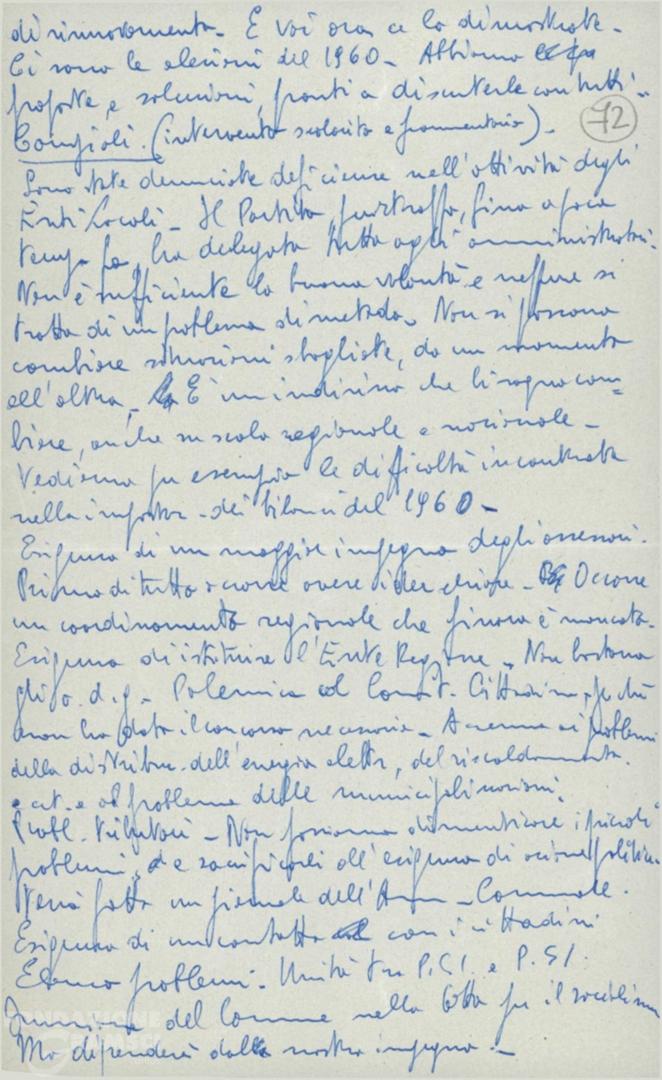 di rinnovamento - E voi ora ce lo dimostrate -
Ci sono le elezioni del 1960 - Abbiamo
proposte e soluzioni, pronti a discuterle con tutti -
72
Conpioli. (intervento scolorito e frammentario) -
Sono state denunciate deficienze nell'attività degli
Enti Locali - Il Partito, purtroppo, fino a poca
tempo fa, ha delegato tutto agli amministratori.
Non è sufficiente la buona volontà e neppure si
tratta di un problema di metodo. Non si possono
cambiare situazioni sbagliate, da un momento
all'altro - È un indirizzo che bisogna cam=
biare, anche su scala regionale e nazionale -
Vediamo per esempio le difficoltà incontrate
nella impostaz. dei bilanci del 1960 -
Esigenza di un maggior impegno degli assessori.
Primo di tutto occorre avere idee chiare - Occorre
un coordinamento regionale che finora è mancato.
Esigenza di istituire l'Ente Regione - Non bastano
gli o. d. g. - Polemica col Comit. Cittadino, perché
non ha dato il concorso necessario - Accenna ai problemi
della distribuz. dell'energia elettr, del riscaldamento.
e cct. e al problema delle municipalizzazioni.
Probl. tributari - Non possiamo dimenticare i piccoli
problemi, e sacrificarli all'esigenza di azione politica.
Verrà fatto un giornale dell'Amm. Comunale.
Esigenza di un contatto con i cittadini
Elenco problemi. Unità tra P.C.I. e P.S.I.
Funzione del Comune nella lotta per il socialismo
Ma dipenderà dal nostro impegno -
FONDAZIONE
GRAMSCI